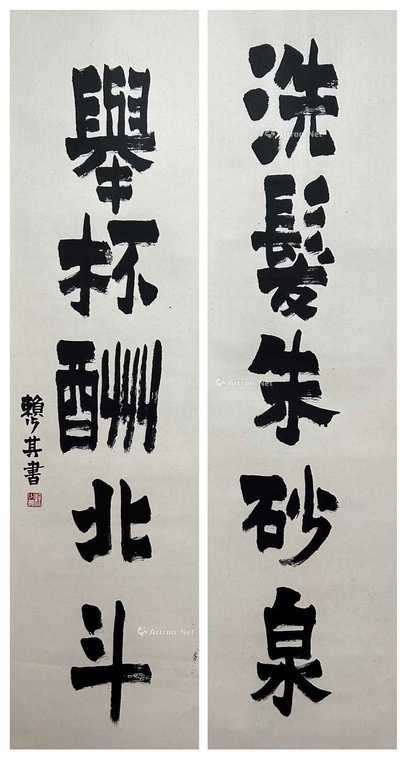 洗髮朱砂泉
舉杯酬北斗
賴少其書
Artron.Net
Artron.Net
Artron.Net